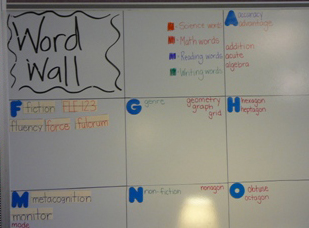 Word
Wall
- Science words
- Math words
- Reading words
- Writing words
A accuracy
advantage
addition
acute
algebra
F fiction
fluency force fulcrum
G genre
geometry
graph
grid
H hexagon
heptagon
M metacognition
monitor
mode
N non-fiction
nonagon
O obtuse
octagon